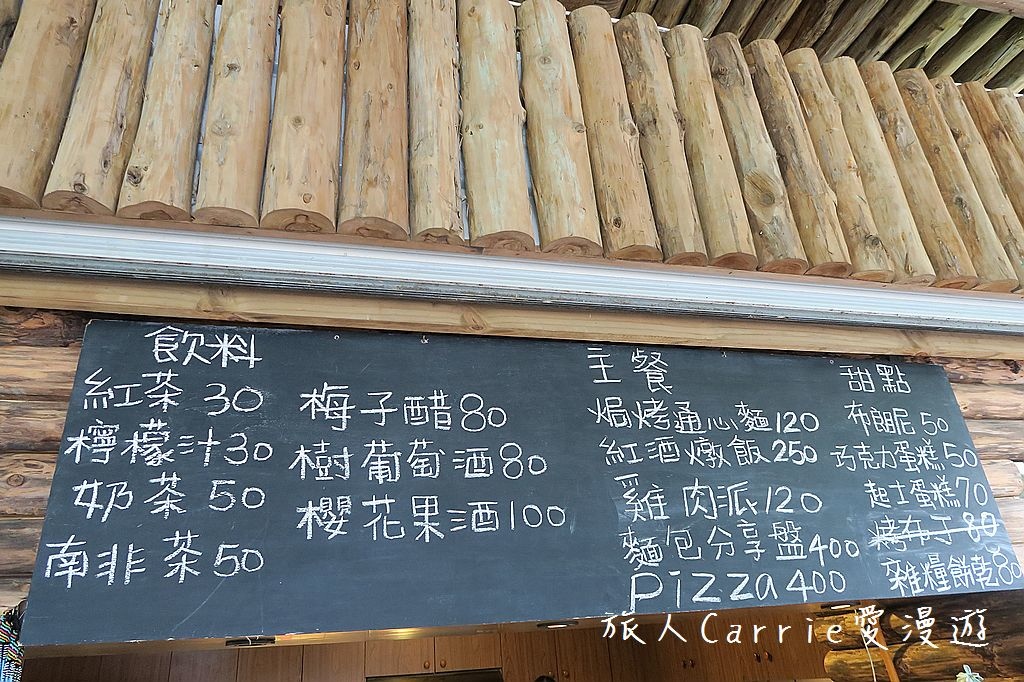 飲料
紅茶 30
檸檬汁30
奶茶 50
南非茶50
梅子醋80
樹葡萄酒80
櫻花果酒100
主餐
焗烤通心麵120
紅酒燉飯250
雞肉派120
麵包分享盤400
pizza400
甜點
布朗尼50
巧克力蛋糕50
起士蛋糕70
烤布丁80
雜糧餅乾80
旅人Carrie愛漫遊